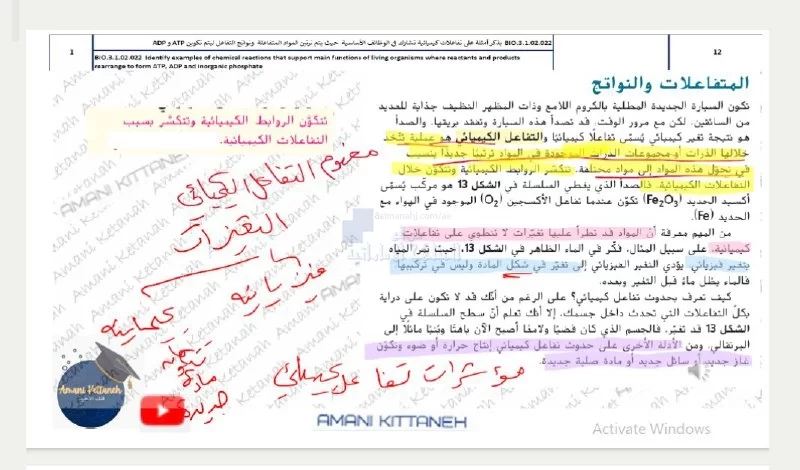 BIO.3.1.02.022 يذكر أمثلة على تفاعلات كيميائية تشارك في الوظائف الأساسية حيث يتم ترتيب المواد المتفاعلة ونواتج التفاعل ليتم تكوين ATP و ADP
BIO.3.1.02.022 Identify examples of chemical reactions that support main functions of living organisms where reactants and products
rearrange to form ATP, ADP and inorganic phosphate
1
12
المتفاعلات والنواتج
تكون السيارة الجديدة المطلية بالكروم اللامع وذات المظهر النظيف جذابة للعديد
من السائقين. لكن مع مرور الوقت، قد تصدأ هذه السيارة وتفقد بريقها. والصدأ
هو نتيجة تغير كيميائي يُسمّى تفاعلًا كيميائيًا والتفاعل الكيميائي هو عملية تتّخذ
خلالها الذرات أو مجموعات الذرات الموجودة في المواد ترتيبًا جديدًا يتسبب
في تحوّل هذه المواد إلى مواد مختلفة. تتكسّر الروابط الكيميائية وتتكوّن خلال
التفاعلات الكيميائية. فالصدأ الذي يغطي السلسلة في الشكل 13 هو مركّب يُسمّى
أكسيد الحديد (Fe2O3) تكوّن عندما تفاعل الأكسجين (O2) الموجود في الهواء مع
الحديد (Fe).
من المهم معرفة أن المواد قد تطرأ عليها تغيّرات لا تنطوي على تفاعلات
كيميائية. على سبيل المثال، فكّر في الماء الظاهر في الشكل 13، حيث تمر المياه
بتغير فيزيائي. يؤدي التغير الفيزيائي إلى تغيّر في شكل المادة وليس في تركيبها
فالماء يظل ماءً قبل التغير وبعده.
كيف تعرف بحدوث تفاعل كيميائي؟ على الرغم من أنك قد لا تكون على دراية
بكل التفاعلات التي تحدث داخل جسمك، إلا أنك تعلم أنّ سطح السلسلة في
الشكل 13 قد تغيّر. فالجسم الذي كان فضيًا ولامعًا أصبح الآن باهتًا وبُنيًا مائلًا إلى
البرتقالي. ومن الأدلة الأخرى على حدوث تفاعل كيميائي إنتاج حرارة أو ضوء وتكوّن
غاز جديد أو سائل جديد أو مادة صلبة جديدة.
تتكوّن الروابط الكيميائية وتتكسّر بسبب
التفاعلات الكيميائية.
مفهوم التفاعل الكيميائي
التغيرات
فيزيائية
كيميائية
مادة
جديدة
مؤشرات تفاعل كيميائي
almanahj.com/ae
Amani Kettaneh
AMANI KITTANEH
Activate Windows